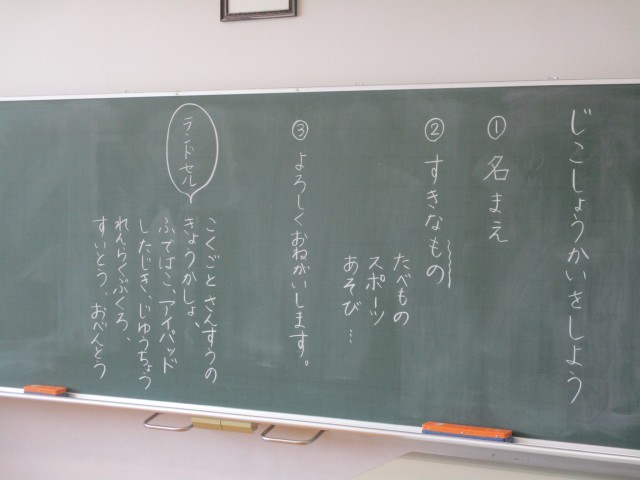 じこしょうかいをしよう
① 名まえ
② すきなもの
たべもの
スポーツ
あそび…
③ よろしくおねがいします。
ランドセル
こくごとさんすうの
きょうかしょ、
ふでばこ、アイパッド
したじき、じゆうちょう
れんらくぶくろ、
すいとう、おべんとう